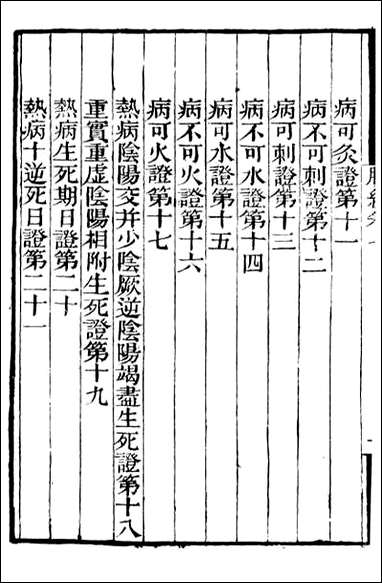 病可灸證第十一
病不可刺證第十二
病可刺證第十三
病不可水證第十四
病可水證第十五
病不可火證第十六
病可火證第十七
熱病陰陽交并少陰厥逆陰陽竭盡生死證第十八
重實重虛陰陽相附生死證第十九
熱病生死期日證第二十
熱病十逆死日證第二十一